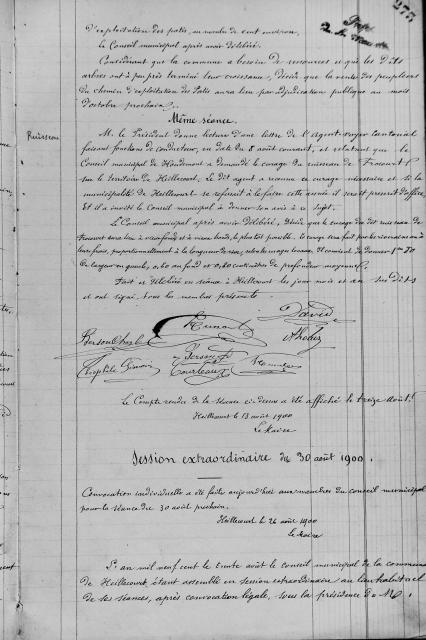 277
d'exploitation des patis, au nombre de cent environ,
Le Conseil municipal après avoir délibéré.
Considérant que la commune a besoin de ressources et que les dits
arbres ont à peu près terminé leur croissance, décide que la vente des peupliers
du chemin d'exploitation des Patis aura lieu par adjudication publique au mois
d'octobre prochain.
Même séance.
Ruisseau
M. le Président donne lecture d'une lettre de l'Agent-voyer Cantonal
faisant fonctions de conducteur, en date du 8 août courant, et relatant que le
Conseil municipal de Houdemont a demandé le curage du ruisseau de Frocourt
sur le territoire de Heillecourt. Le dit agent a reconnu ce curage nécessaire et si la
municipalité de Heillecourt se refusait à le faire cette année il serait prescrit d'office
Et il a invité le Conseil municipal à donner son avis à ce sujet.
Le Conseil municipal après avoir délibéré, décide que le curage du dit ruisseau de
Frocourt aura lieu à vieux fonds et à vieux bords, le plus tôt possible. Le curage sera fait par les riverains ou à
leurs frais, proportionnellement à la longueur de rives,
de largeur en gueule, 0.60 au fond et 0,40 centimètres de profondeur moyenne.
Fait et délibéré en séance à Heillecourt les jour, mois et an sus dits
et ont signé, tous les membres présents
David
Théophile
Le Compte rendu de la séance ci-dessus a été affiché le treize août.
Heillecourt le 13 août 1900
Le Maire
Session extraordinaire du 30 août 1900.
Convocation individuelle a été faite aujourd'hui aux membres du conseil municipal
pour la séance du 30 août prochain.
Heillecourt le 26 août 1900
Le Maire
L'an mil neuf cent le trente août le conseil municipal de la commune
de Heillecourt, étant assemblé en session extraordinaire au lieu habituel
de ses séances, après convocation légale, sous la présidence de M.